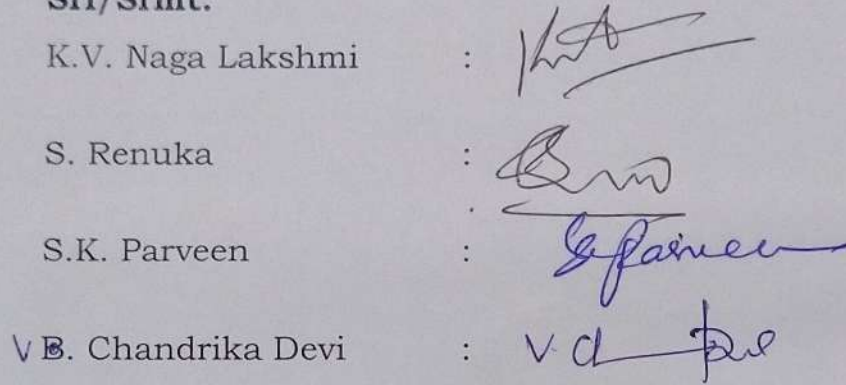 Sri/Smt.
K.V. Naga Lakshmi :
S. Renuka :
S.K. Parveen : Sk Parveen
V B. Chandrika Devi :